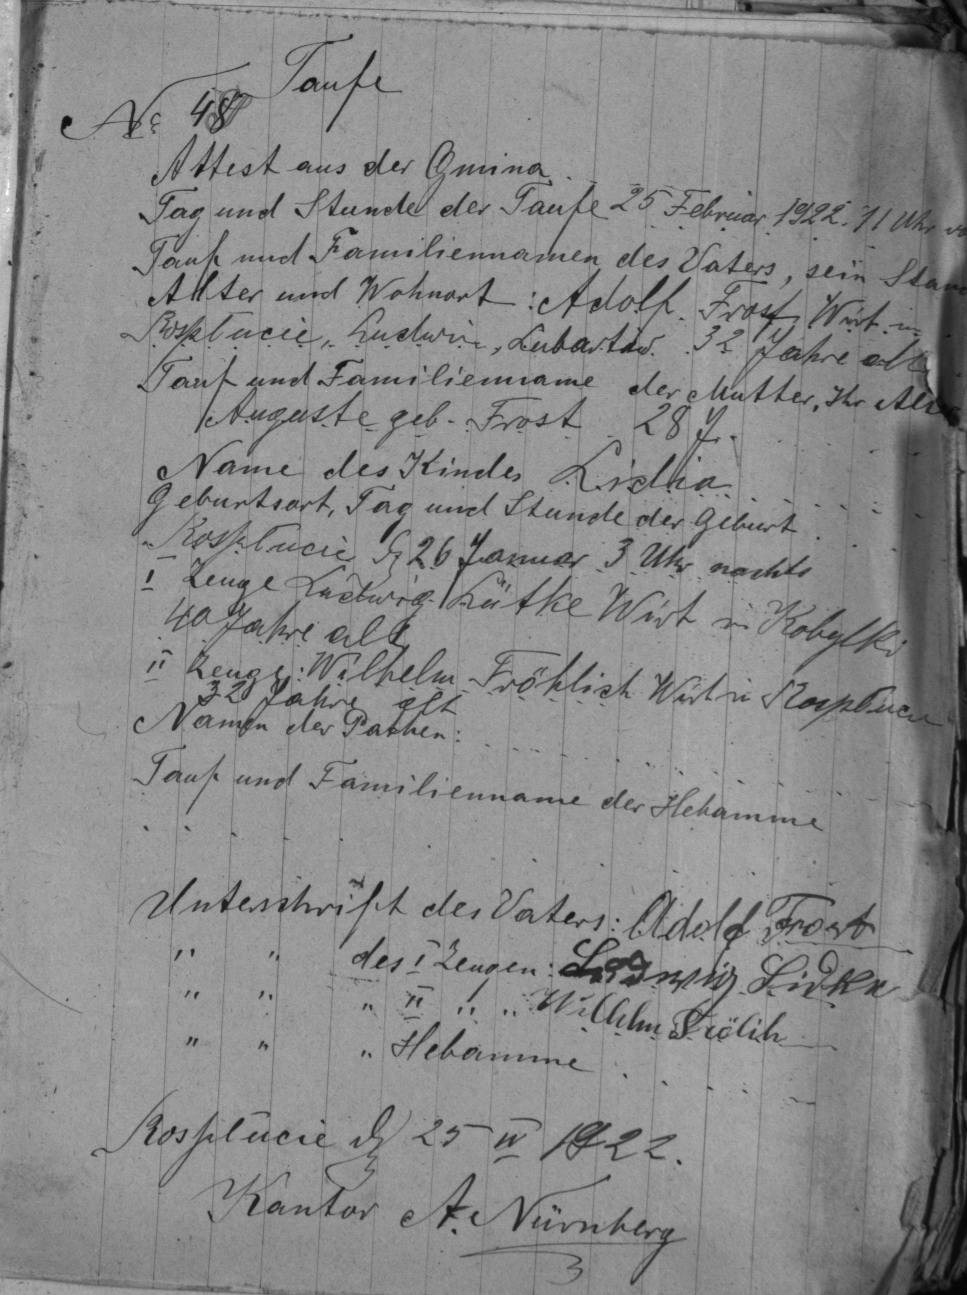 Taufe
No 48
Attest aus der Gmina
Tag und Stunde der Taufe 25 Februar 1922. 11 Uhr
Tauf und Familiennamen des Vaters, sein Stand
Alter und Wohnort : Adolf Frost, Wirt in
Rospłucie, Ludwin, Lubartów 32 Jahre alt
Tauf und Familienname der Mutter, Ihr Alter
Auguste geb. Frost 28 J.
Name des Kindes Lidia
Geburtsort, Tag und Stunde der Geburt
Rospłucie d 26 Januar 3 Uhr nachts
I Zeuge Ludwig Lütke Wirt in Kobyłki
40 Jahre alt
II Zeuge: Wilhelm Fröhlich Wirt in Rospłucie
32 Jahre alt
Namen der Pathen:
Tauf und Familienname der Hebamme
Unterschrift des Vaters: Adolf Frost
" " des I Zeugen: Ludwig Lidke
" " " II " " Wilhelm Frölih
" " " Hebamme
Rospłucie d 25 IV 1922.
Kantor A. Nürnberg